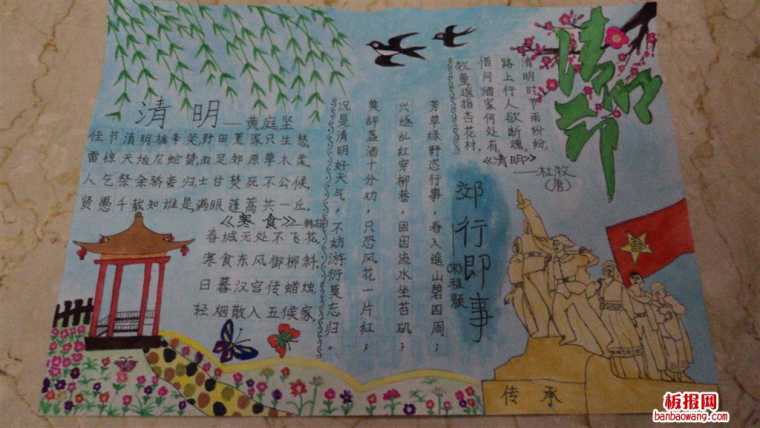 清明节
清明时节雨纷纷,
路上行人欲断魂,
借问酒家何处有,
牧童遥指杏花村,
《清明》
——杜牧
(唐)
清明——黄庭坚
佳节清明桃李笑,野田荒冢只生愁
雷惊天地龙蛇蛰,雨足郊原草木柔
人乞祭余骄妾妇士甘焚死不公侯,
贤愚千载知谁是满眼蓬蒿共一丘,
《寒食》——韩翃
春城无处不飞花,
寒食东风御柳斜,
日暮汉宫传蜡烛,
轻烟散入五侯家,
郊行即事
(宋)程颢
芳草绿野恣行事,春入遥山碧四周;
兴逐乱红穿柳巷,困因流水坐苔矶;
莫辞盏酒十分劝,只恐风花一片红;
况是清明好天气,不妨游衍莫忘归。
传承
板报网
banbaowang.com